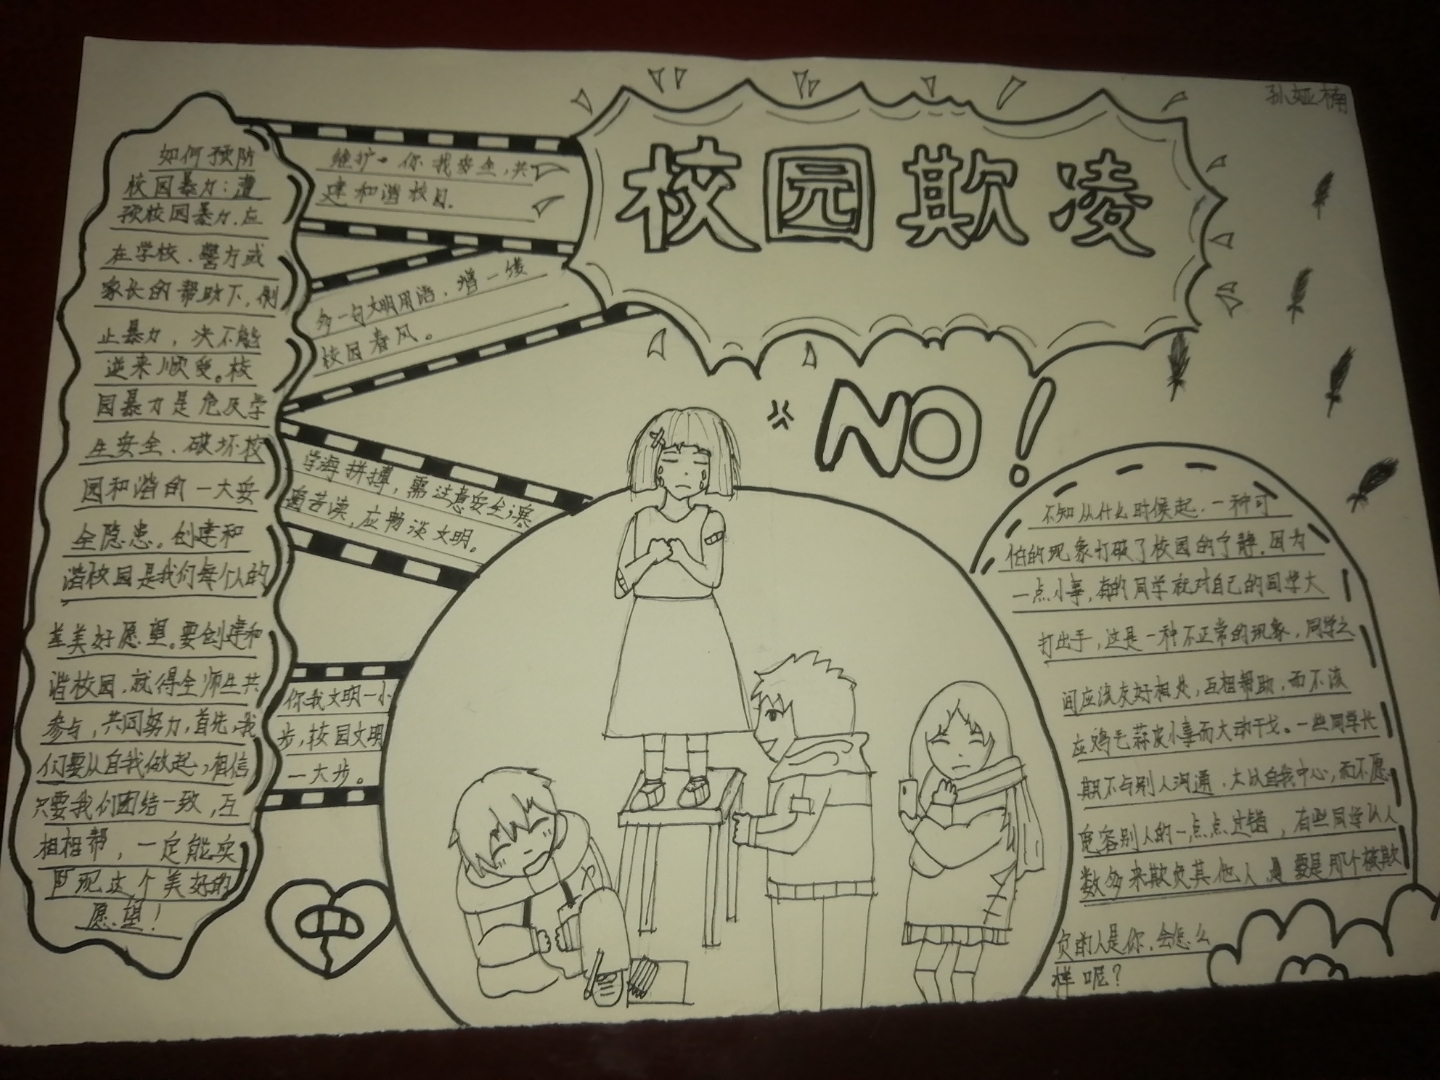 孙娅楠
校园欺凌
NO!
如何预防
校园暴力:遭
预校园暴力.应
在学校.警方或
家长的帮助下,制
止暴力,决不能
逆来顺受。校
园暴力是危及学
生安全.破坏校
园和谐的一大安
全隐患。创建和
谐校园是我们每个人的
美好愿望。要创建和
谐校园.就得全师生共
参与,共同努力,首先,我
们要从自我做起,相信
只要我们团结一致,互
相相帮,一定能实
现这个美好的
愿望!
维护。你我安全,共
建和谐校园.
多一句文明用语.增一缕
校园春风。
学海拼搏,需注意安全;寒
窗苦读,应畅谈文明。
你我文明一小
步,校园文明
一大步。
不知从什么时候起.一种可
怕的现象打破了校园的宁静。因为
一点小事,有的同学就对自己的同学大
打出手,这是一种不正常的现象,同学之
间应该友好相处,互相帮助,而不该
应鸡毛蒜皮小事而大动干戈。一些同学长
期不与别人沟通.太以自我中心,而不愿
宽容别人的一点点过错,有些同学以人
数多来欺负其他人 要是那个被欺
负的人是你.会怎么
样呢?